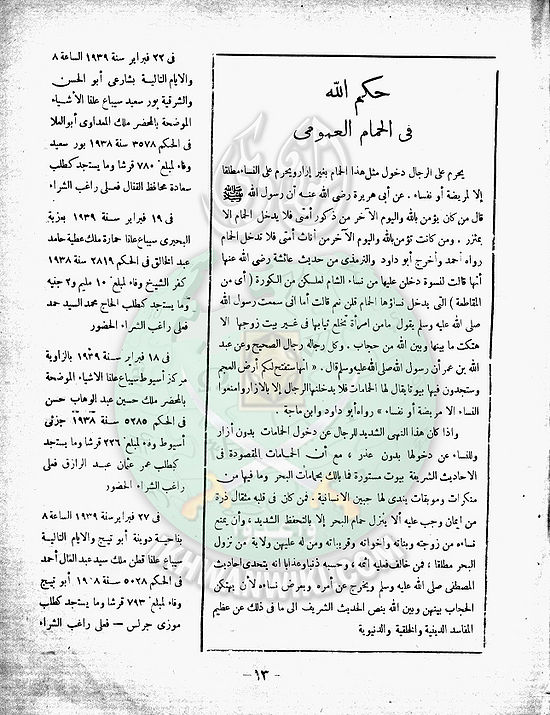 حكم الله
فى الحمام العمومى
يحرم على الرجال دخول مثل هذا الحمام بغير إزار ويحرم على النساء مطلقا
إلا لمريضة أو نفساء . عن أبى هريرة رضى الله عنه أن رسول الله ﷺ
قال من كان يؤمن بالله واليوم الآخر من ذكور أمتى فلا يدخل الحمام الا
بمئزر . ومن كانت تؤمن بالله واليوم الآخر من أناث أمتى فلا تدخل الحمام
رواه أحمد وأخرج أبو داود والترمذى من حديث عائشة رضى الله عنها
أنها قالت لنسوة دخلن عليها من نساء الشام لعلكن من الكورة ( أى من
المقاطعة ) التى يدخل نساؤها الحمام قلن نعم قالت أما انى سمعت رسول الله
صلى الله عليه وسلم يقول ما من امرأة تخلع ثيابها فى غير بيت زوجها الا
هتكت ما بينها وبين الله من حجاب . وكل رجاله رجال الصحيح وعن عبد
الله بن عمر أن رسول الله صلى الله عليه وسلم قال . « انها ستفتح لكم أرض العجم
وستجدون فيها بيوتا يقال لها الحمامات فلا يدخلنها الرجال إلا بالازار وامنعوا
النساء الا مريضة أو نفساء » رواه أبو داود وابن ماجة .
واذا كان هذا النهى الشديد للرجال عن دخول الحمامات بدون أزار
وللنساء عن دخولها بدون عذر ، مع أن الحمامات المقصودة فى
الاحاديث الشريفة بيوت مستورة فما بالك بحمامات البحر وما فيها من
منكرات وموبقات يندى لها جبين الانسانية . فمن كان فى قلبه مثقال ذرة
من ايمان وجب عليه ألا ينزل حمام البحر إلا بالتحفظ الشديد ، وأن يمنع
نساءه من زوجته وبناته وأخواته وقريباته ومن له عليهن ولاية من نزول
البحر مطلقا ، فمن خالف فعليه أثمه ، وحسبه ذنبا وعذابا انه يتحدى احاديث
المصطفى صلى الله عليه وسلم ويخرج عن أمره ويعرض نساءه لأن يهتكن
الحجاب بينهن وبين الله بنص الحديث الشريف الى ما فى ذلك عن عظيم
المفاسد الدينية والخلقية والدنيوية
فى ٢٢ فبراير سنة ١٩٣٩ الساعة ٨
والايام التالية بشارعى أبو الحسن
والشرقية بور سعيد سيباع علنا الأشياء
الموضحة بالمحضر ملك المعداوى أبو العلا
فى الحكم ٣٥٧٨ سنة ١٩٣٨ بور سعيد
وفاء لمبلغ ٧٨٠ قرشا وما يستجد كطلب
سعادة محافظ القنال فعلى راغب الشراء
فى ١٩ فبراير سنة ١٩٣٩ بعزبة
البحيرى سيباع علنا حمارة ملك عطية حامد
عبد الخالق فى الحكم ٢٨١٩ سنة ١٩٣٨
كفر الشيخ وفاء لمبلغ ١٠ مليم و٢ جنيه
وما يستجد كطلب الحاج محمد السيد حمد
فعلى راغب الشراء الحضور
فى ١٨ فبراير سنة ١٩٣٩ بالزاوية
مركز أسيوط سيباع علنا الاشياء الموضحة
بالمحضر ملك حسين عبد الوهاب حسن
فى الحكم ٥٢٨٥ سنة ١٩٣٨ جزئى
أسيوط وفاء لمبلغ ٢٢٦ قرشا وما يستجد
كطلب عمر عثمان عبد الرازق فعلى
راغب الشراء الحضور
فى ٢٧ فبراير سنة ١٩٣٩ الساعة ٨
بناحية دوينة أبو تيج والايام التالية
سيباع علنا قطن ملك سيد عبد العال أحمد
فى الحكم ٥٠٢٨ سنة ١٩٠٨ أبو تيج
وفاء لمبلغ ٧٩٣ قرشا وما يستجد كطلب
موزى جرلس — فعلى راغب الشراء
- ١٣ -
IKHWANWIKI.COM